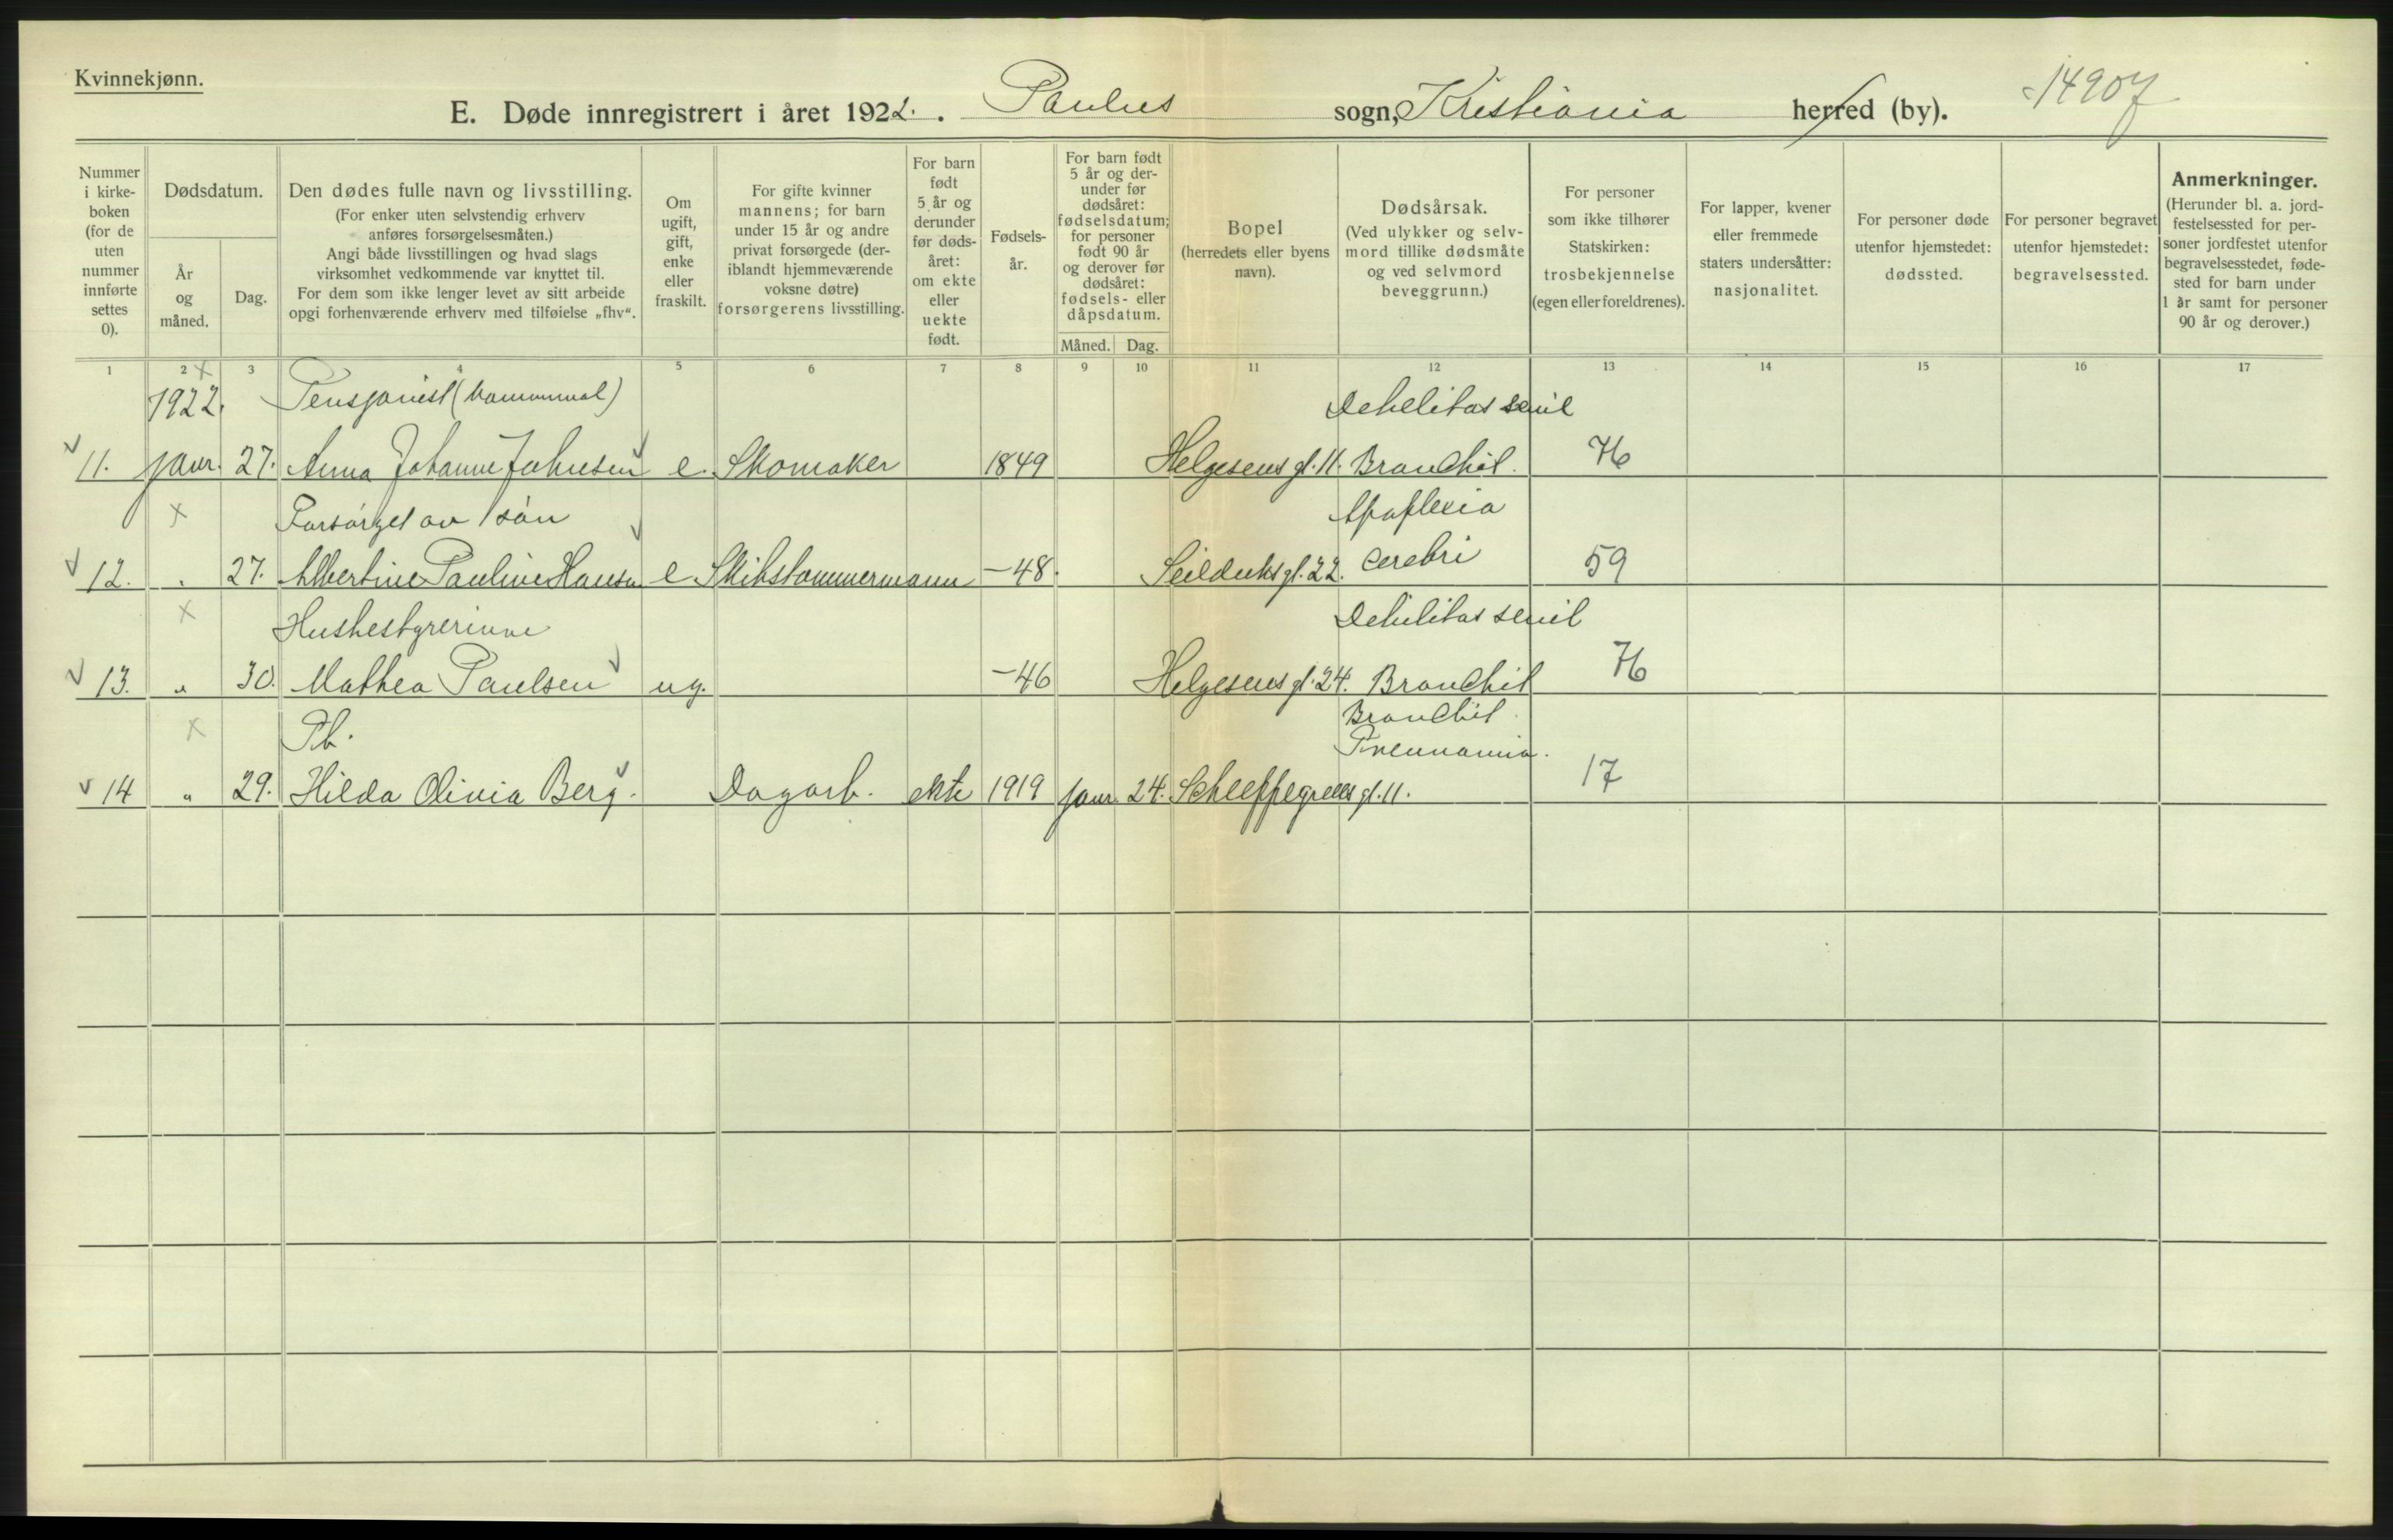 Kvinnekjønn.
E. Døde innregistrert i året 1922. Paulus sogn, Kristiania herred (by).
14907
Nummer i kirke-boken (for de uten nummer innførte settes 0).
Dødsdatum.
År og måned.
Dag.
Den dødes fulle navn og livsstilling.
(For enker uten selvstendig erhverv anføres forsørgelsesmåten.)
Angi både livsstillingen og hvad slags virksomhet vedkommende var knyttet til.
For dem som ikke lenger levet av sitt arbeide opgi forhenværende erhverv med tilføielse „fhv“.
Om ugift, gift, enke eller fraskilt.
For gifte kvinner mannens; for barn under 15 år og andre privat forsørgede (deriblandt hjemmeværende voksne døtre) forsørgerens livsstilling.
For barn født 5 år og derunder før dødsåret: om ekte eller uekte født.
Fødselsår.
For barn født 5 år og derunder før dødsåret: fødselsdatum; for personer født 90 år og derover før dødsåret: fødsels- eller dåpsdatum.
Måned. Dag.
Bopel (herredets eller byens navn).
Dødsårsak.
(Ved ulykker og selvmord tillike dødsmåte og ved selvmord beveggrunn.)
For personer som ikke tilhører Statskirken: trosbekjennelse (egen eller foreldrenes).
For lapper, kvener eller fremmede staters undersåtter: nasjonalitet.
For personer døde utenfor hjemstedet: dødssted.
For personer begravet utenfor hjemstedet: begravelsessted.
Anmerkninger.
(Herunder bl. a. jordfestelsessted for personer jordfestet utenfor begravelsesstedet, fødested for barn under 1 år samt for personer 90 år og derover.)
1 2 3 4 5 6 7 8 9 10 11 12 13 14 15 16 17
1922. Pensjonist (kommunal) Debelitas senil
11. janr. 27. Anna Johanne Johnsen e. Skomaker 1849 Helgesens gt. 11. Bronchit. 76
Forsørget av søn Apoplexia
12. " 27. Albertine Pauline Hansen e Skibstømmermann -48. Seilduksgt. 22. cerebri 59
Husbestyrerinne Debilitas senil
13. " 30. Mathea Paulsen ug. -46 Helgesens gt. 24. Bronchit 76
Pb. Bronchit.
Pneunomia.
14 " 29. Hilda Olivia Berg. Dagarb. ekte 1919 janr. 24. Schleppegrells gt. 11. 17